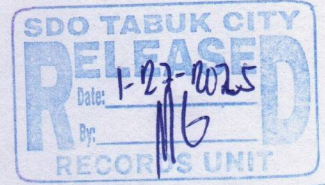 SDO TABUK CITY
RELEASED
Date: 1-27-2025
By: MG
RECORDS UNIT